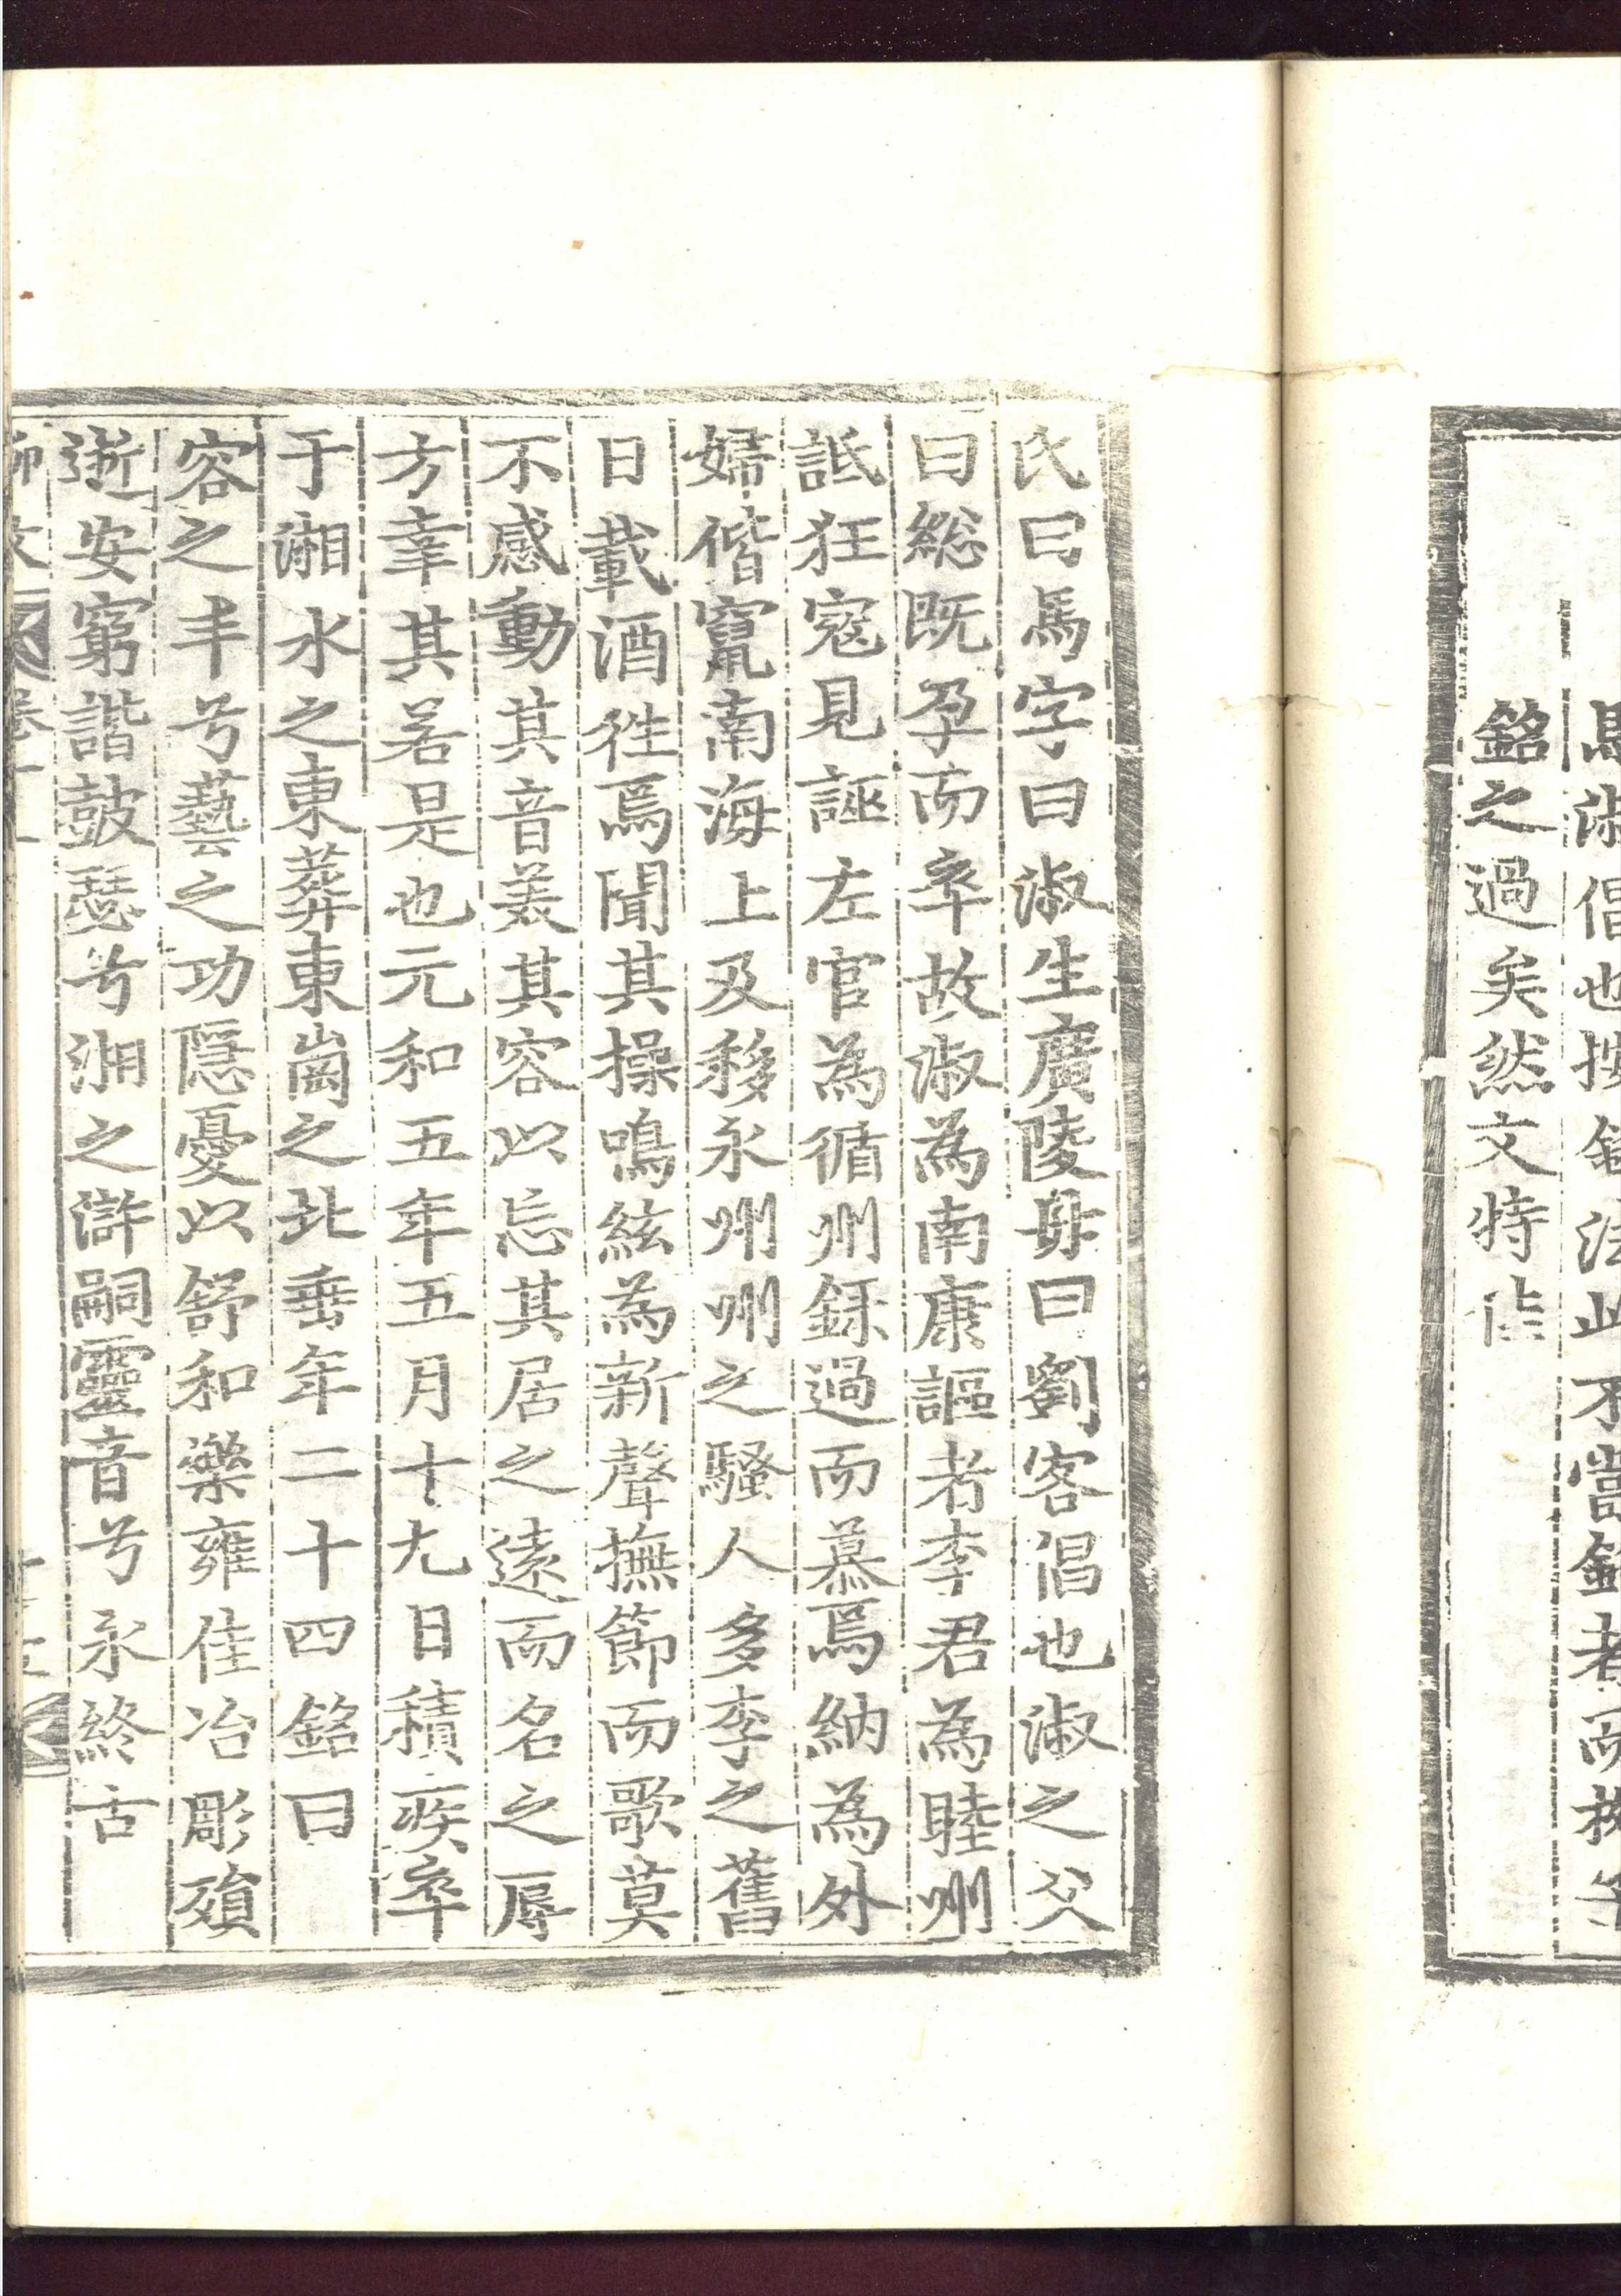 銘之過矣然文特佳
氏曰馬字曰淑生廣陵母曰劉客倡也淑之父
曰總既孕而卒故淑為南康謳者李君為睦州
詆狂寇見誣左官為循州錄過而慕焉納為外
婦偕竄南海上及移永州州之騷人多李之舊
日載酒往焉聞其操鳴絃為新聲撫節而歌莫
不感動其音美其容以忘其居之遠而名之辱
方幸其若是也元和五年五月十九日積疾卒
于湘水之東葬東崗之北垂年二十四銘曰
容之丰兮藝之功隱憂以舒和樂雍佳冶彫殞
逝安窮諧鼓瑟兮湘之滸嗣靈音兮永終古